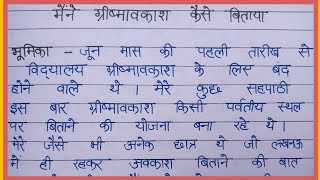 मैंने ग्रीष्मावकाश कैसे बिताया
भूमिका - जून मास की पहली तारीख से
विद्यालय ग्रीष्मावकाश के लिए बंद
होने वाले थे । मेरे कुछ सहपाठी
इस बार ग्रीष्मावकाश किसी पर्वतीय स्थल
पर बिताने की योजना बना रहे थे ।
मेरे जैसे भी अनेक छात्र थे जो लखनऊ
में ही रहकर अवकाश बिताने की बात